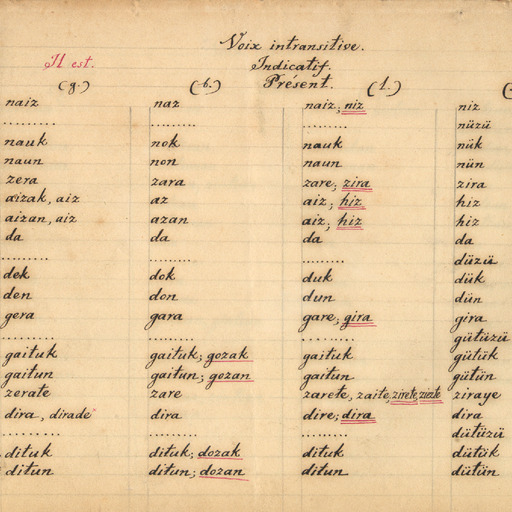 Voix intransitive.
Il est. Indicatif.
(g.) (b.) Présent. (l.)
naiz naz naiz; niz niz
......... ........ ........ nüzü
nauk nok nauk nük
naun non naun nün
zera zara zare; zira zira
aizak, aiz az aiz; hiz hiz
aizan, aiz azan aiz; hiz hiz
da da da da
......... ........ ........ düzü
dek dok duk dük
den don dun dün
gera gara gare; gira gira
......... ........ ........ gütüzü
gaituk gaituk; gozak gaituk gütük
gaitun gaitun; gozan gaitun gütün
zerate zare zarete, zaite, zirete, ziezte ziraye
dira, dirade dira dire; dira dira
......... ........ ........ dütüzü
dituk dituk; dozak dituk dütük
ditun ditun; dozan ditun dütün